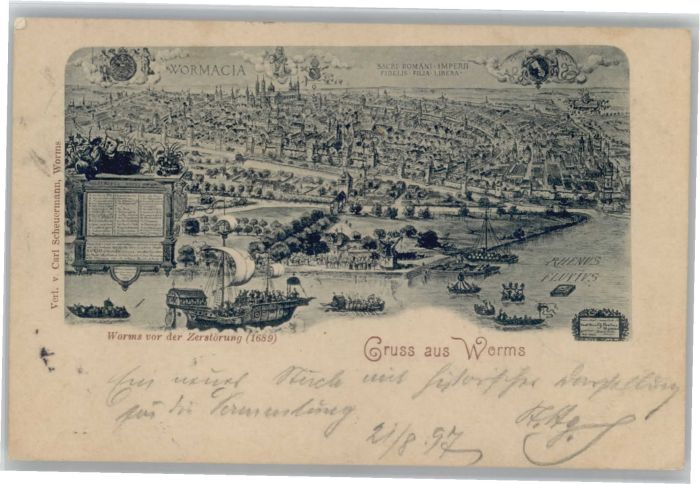 WORMACIA
SACRI ROMANI IMPERII
FIDELIS FILIA LIBERA
RHENUS
FLUVIUS
Verl. v Carl Scheuermann, Worms
Worms vor der Zerstörung (1689)
Gruss aus Worms
Ein neues Stück mit historischer Darstellung
für die Sammlung
21/8 97